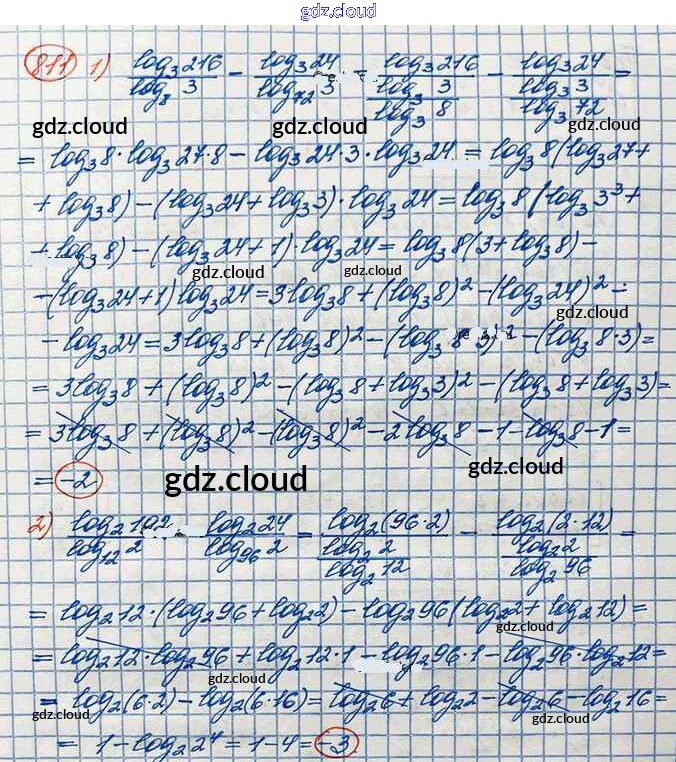 gdz.cloud
811 1) log₃216/log₈3 − log₃24/log₇₂3 = log₃216/(log₃3/log₃8) − log₃24/(log₃3/log₃72) =
gdz.cloud gdz.cloud
= log₃8·log₃27·8 − log₃24·3·log₃24 = log₃8(log₃27+
+ log₃8) − (log₃24 + log₃3)·log₃24 = log₃8(log₃3³+
+ log₃8) − (log₃24+1)·log₃24 = log₃8(3+log₃8) −
gdz.cloud gdz.cloud
− (log₃24+1)log₃24 = 3log₃8 + (log₃8)² − (log₃24)² −
gdz.cloud
− log₃24 = 3log₃8 + (log₃8)² − (log₃8·3)² − (log₃8·3) =
= 3log₃8 + (log₃8)² − (log₃8 + log₃3)² − (log₃8 + log₃3) =
= 3log₃8 + (log₃8)² − (log₃8)² − 2log₃8 − 1 − log₃8 − 1 =
= −2
gdz.cloud gdz.cloud
2) log₂192/log₁₂2 log₂24/log₉₆2 = log₂(96·2)/(log₂2/log₂12) − log₂(2·12)/(log₂2/log₂96) =
= log₂12·(log₂96+log₂2) − log₂96(log₂2 + log₂12) =
gdz.cloud
= log₂12·log₂96 + log₂12·1 − log₂96·1 − log₂96·log₂12 =
gdz.cloud
= log₂(6·2) − log₂(6·16) = log₂6 + log₂2 − log₂6 − log₂16 =
gdz.cloud gdz.cloud
= 1 − log₂2⁴ = 1 − 4 = −3